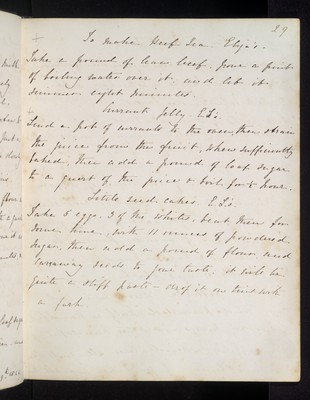 29
To make Beef Tea. Eliza's.
Take a pound of lean beef, pour a pint
of boiling water over it, and let it
simmer eight minutes.
Currant Jelly.
Send a pot of currants to the oven, then strain
the juice from the fruit, when sufficiently
baked, then add a pound of loaf sugar
to a quart of the juice & boil for ½ hour.
Little seed cakes.
Take 5 eggs, 3 of the whites, beat them for
some time, with 11 ounces of powdered
sugar, then add a pound of flour and
carraway seeds to your taste; it will be
quite a stiff paste - drop it on tins with
a fork